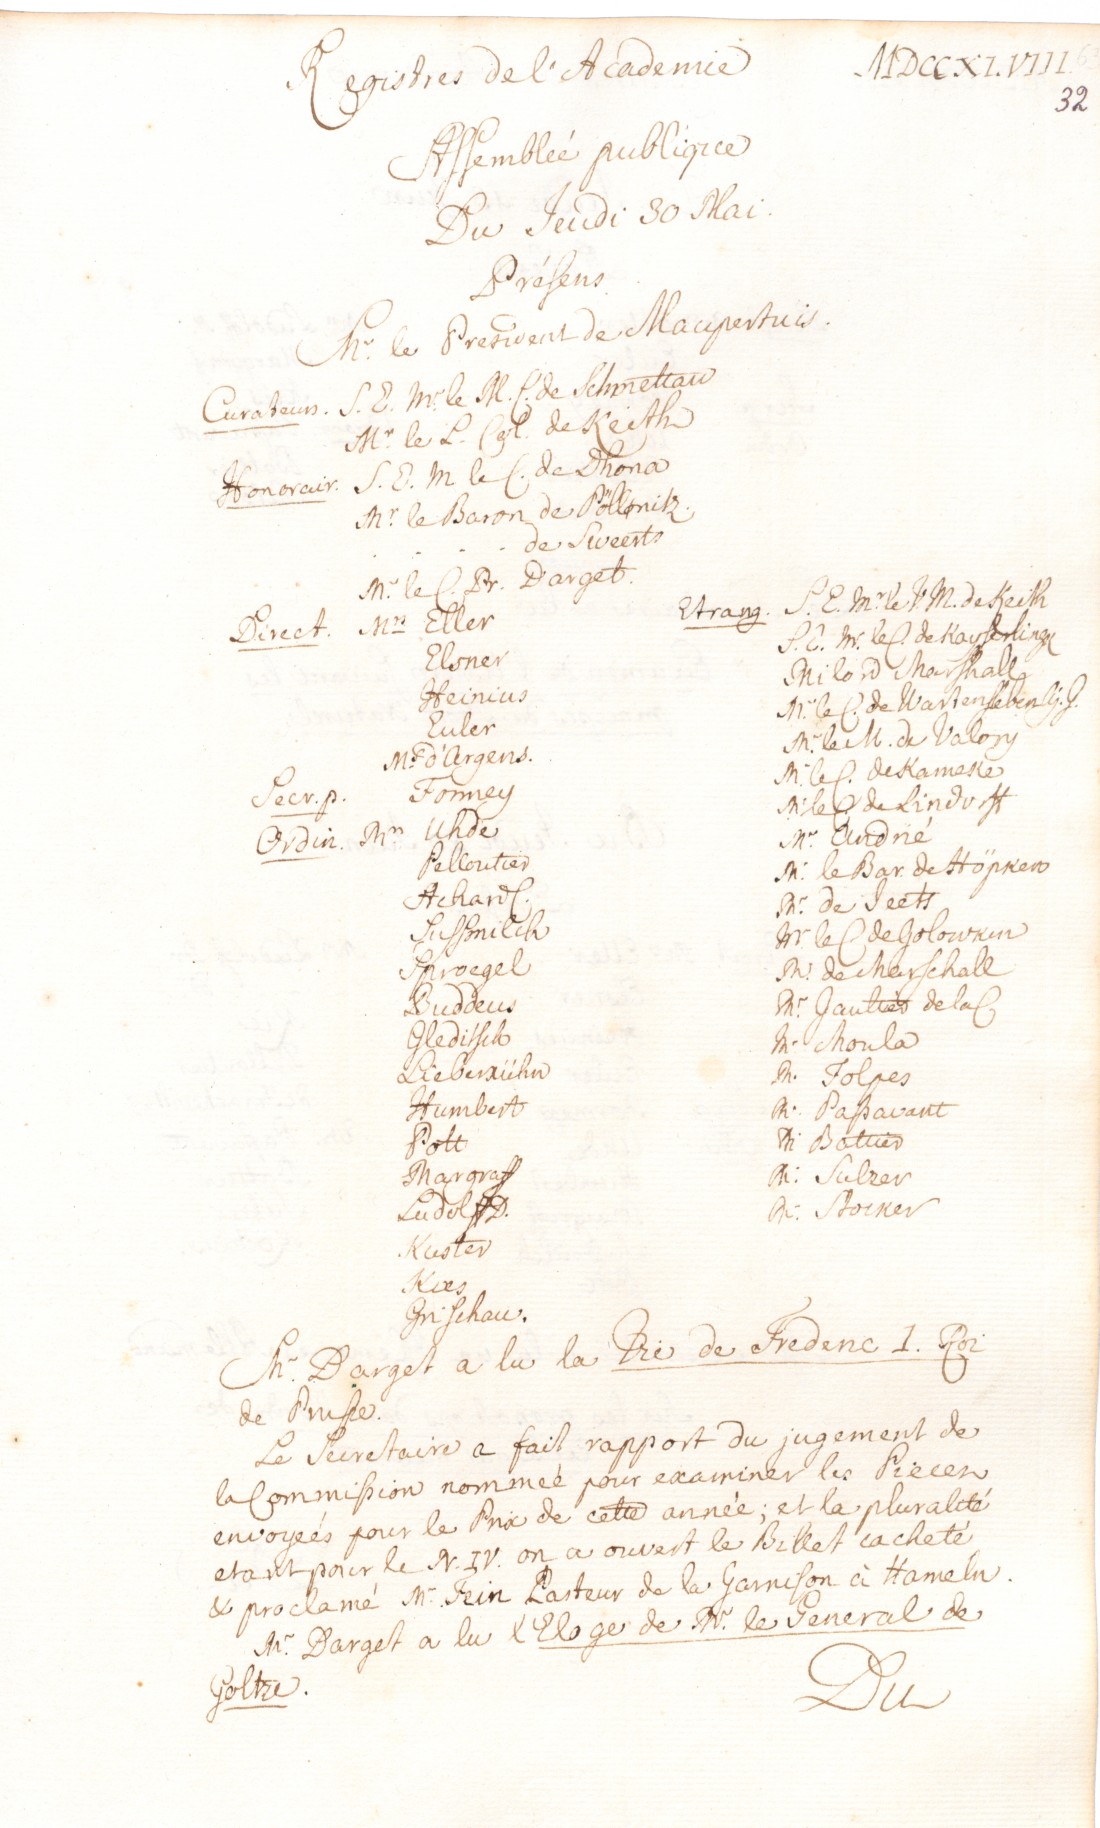 Registres de l'Academie
MDCCXLVIII.
63
32
Assembleé publique
Du Jeudi 30 Mai.
Présens
Mr. le President de Maupertuis.
Curateurs. S. E. Mr. le M. C. de Schmettau
Mr. le L. Gl. de Keith
Honorair. S. E. M. le C. de Dhona
Mr. le Baron de Pöllnitz.
. . . . de Sweerts
Mr. le C. Pr. D'arget.
Direct. Mrs Eller
Elsner
Heinius
Euler
Mr d'Argens.
Secr. p. Formey
Ordin. Mrs Uhde
Pelloutier
Achard C.
Sussmilch
Sproegel
Buddeus
Gleditsch
Lieberkühn
Humbert
Pott
Margraff
Ludolff D.
Kuster
Kies
Grischau.
Etrang. S. E. Mr. le V. M. de Keith
S. E. Mr. le C. de Kayserlingk
Milord Marshall
Mr. le C. de Wartensleben G. G.
Mr. le M. de Valory
Mr. le C. de Kameke
Mr. le C. de Lindorff
Mr. Andrié
Mr. le Bar. de Höpken
Mr. de Jeets
Mr. le C. de Golowkin
Mr. de Marschall
Mr. Gaultier de la C.
Mr. Moula
Mr. Folpes
Mr. Passavant
Mr Battier
Mr. Sulzer
Mr. Stocker
Mr. D'arget a lu la Vie de Frederic I. Roi
de Prusse.
Le Secretaire a fait rapport du jugement de
la Commission nommeé pour examiner les Pieces
envoyeés pour le Prix de cette année; et la pluralité
etant pour le N. IV. on a ouvert le Billet cacheté
& proclamé Mr. Fein Pasteur de la Garnison à Hameln.
Mr. D'arget a lu l'Eloge de Mr. le General de
Goltze.
Du